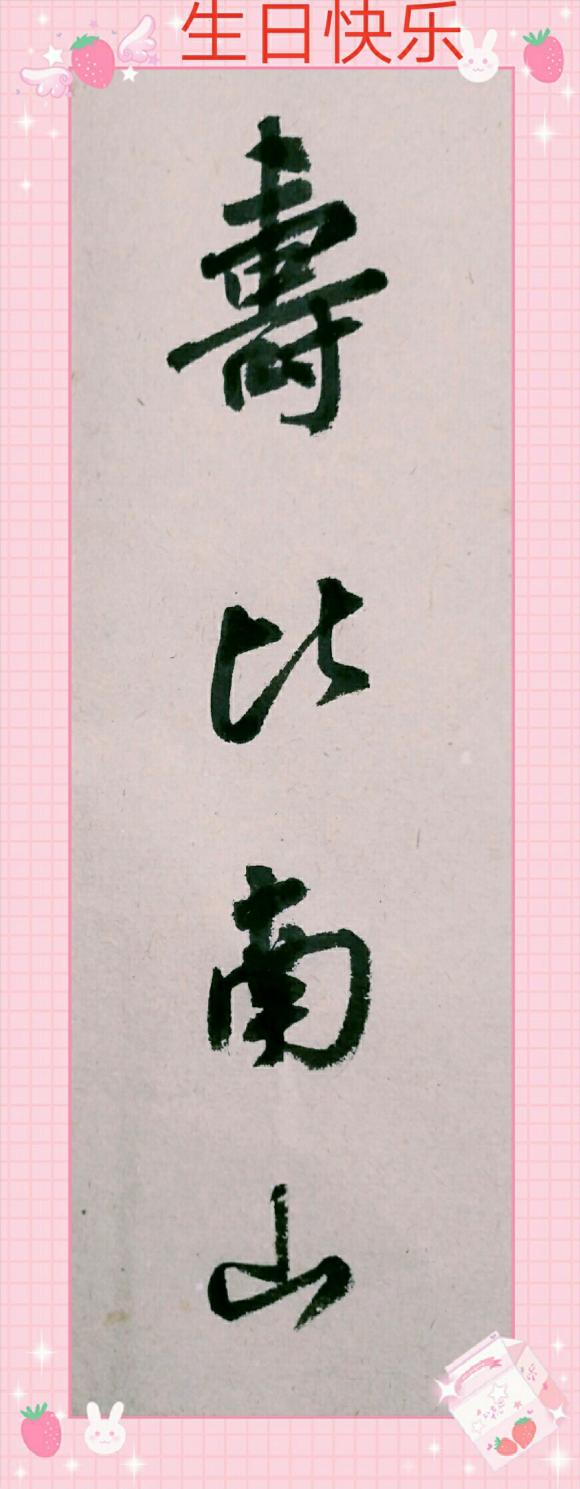 生日快乐
壽比南山